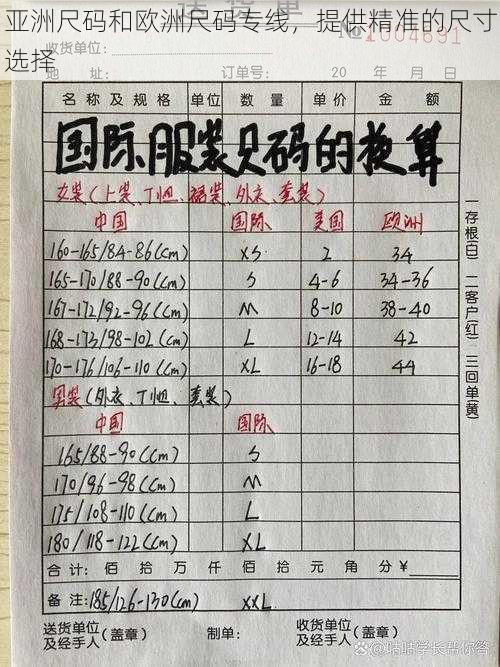 亚洲尺码和欧洲尺码专线，提供精准的尺寸选择
收货单位:
No 1004691
地址: 订单号: 20 年 月 日
名称及规格 单位 数量 单价 金额
国际服装尺码的换算
女装(上装、T恤、裙装、外衣、套装)
中国 国际 美国 欧洲
160-165/84-86(cm) XS 2 34
165-170/88-90(cm) S 4-6 34-36
167-172/92-96(cm) M 8-10 38-40
168-173/98-102(cm) L 12-14 42
170-176/106-110(cm) XL 16-18 44
男装(外衣、T恤、套装)
中国 国际
165/88-90(cm) S
170/96-98(cm) M
175/108-110(cm) L
180/118-122(cm) XL
合计: 佰 拾 万 仟 佰 拾 元 角 分/¥
备注: 185/126-130(cm) XXL
送货单位及经手人(盖章) 制单: 收货单位及经手人(盖章)
一存根(白) 二客户(红) 三回单(黄)